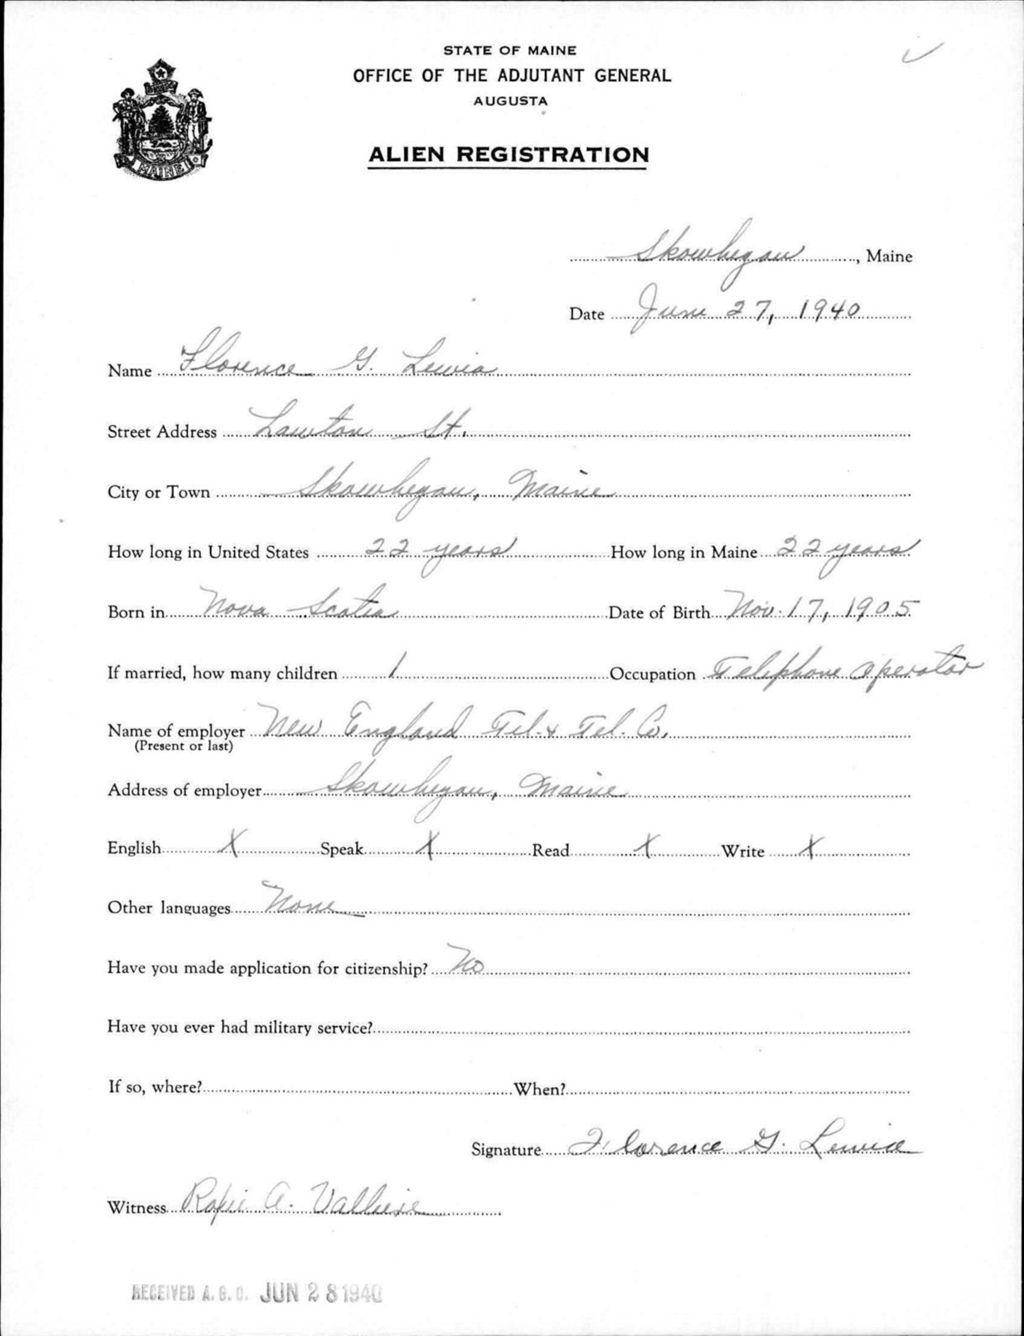 STATE OF MAINE
OFFICE OF THE ADJUTANT GENERAL
AUGUSTA
ALIEN REGISTRATION
MAINE
Skowhegan, Maine
Date June 27, 1940
Name Florence G. Lewia
Street Address Lawton St.
City or Town Skowhegan, Maine
How long in United States 22 years How long in Maine 22 years
Born in Nova Scotia Date of Birth Nov. 17, 1905
If married, how many children 1 Occupation Telephone Operator
Name of employer New England Tel. & Tel. Co.
(Present or last)
Address of employer Skowhegan, Maine
English X Speak X Read X Write X
Other languages None
Have you made application for citizenship? No
Have you ever had military service?
If so, where? When?
Signature Florence G. Lewia
Witness A.
RECEIVED A.G.O. JUN 28 1940